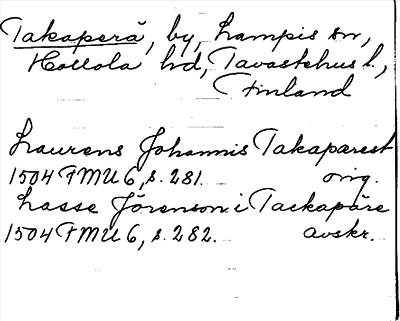 Takaperä, by, Lampis sn,
Hollola hd, Tavastehus l.,
Finland
Laurens Johannis Takaparest
1504 FMU 6, s. 281. orig.
Lasse Jörenson i Tackapäre
1504 FMU 6, s. 282. avskr.